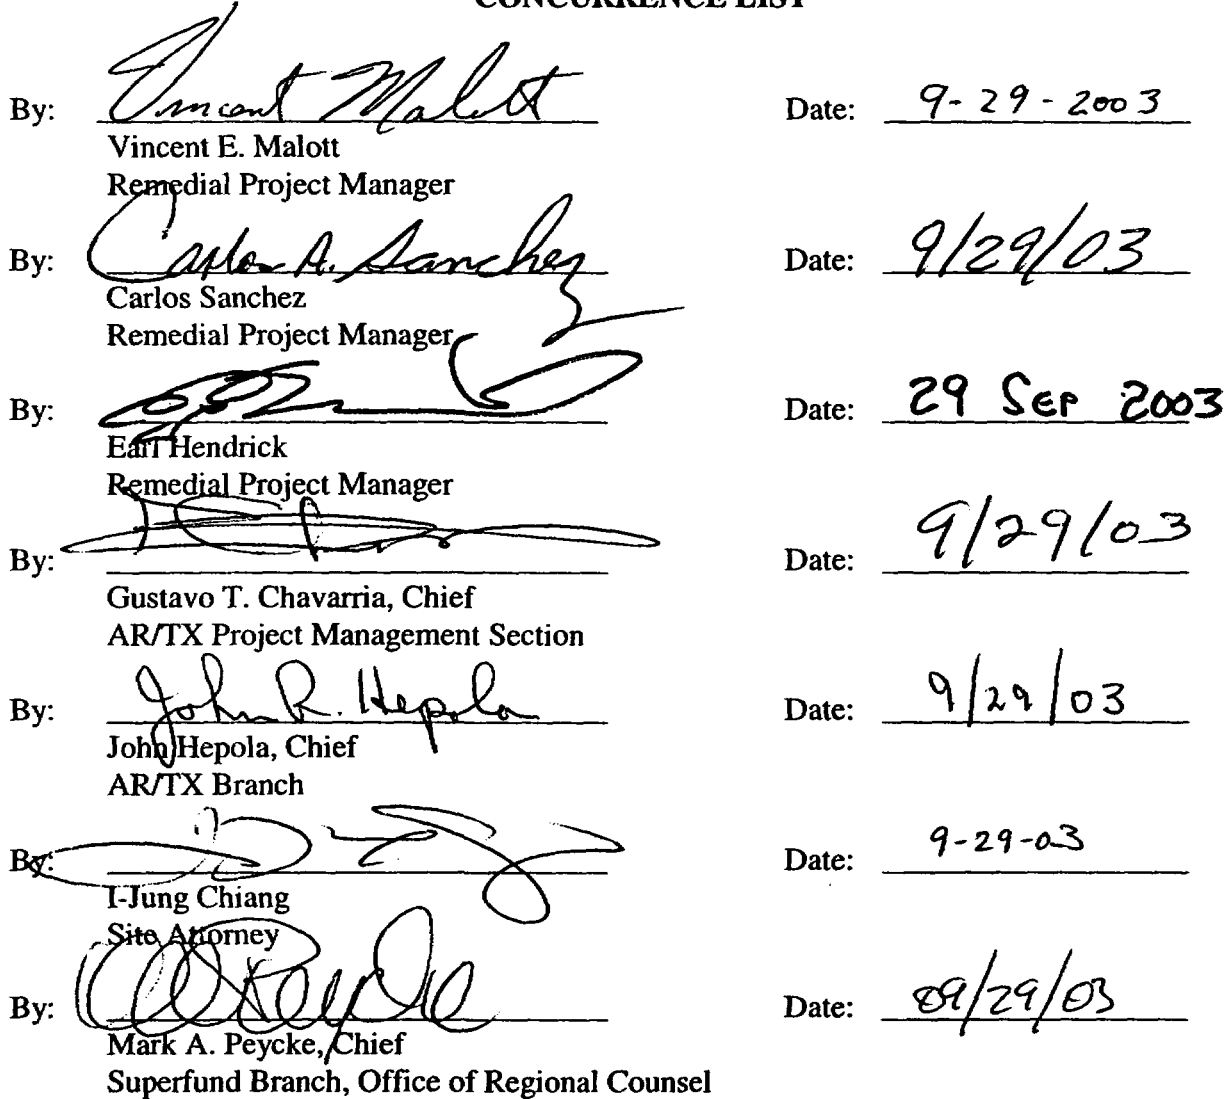 CONCURRENCE LIST
By: Vincent Malott Date: 9-29-2003
Vincent E. Malott
Remedial Project Manager
By: Carlos A. Sanchez Date: 9/29/03
Carlos Sanchez
Remedial Project Manager
By: Date: 29 SEP 2003
Earl Hendrick
Remedial Project Manager
By: Date: 9/29/03
Gustavo T. Chavarria, Chief
AR/TX Project Management Section
By: John R. Hepola Date: 9/29/03
John Hepola, Chief
AR/TX Branch
By: Date: 9-29-03
I-Jung Chiang
Site Attorney
By: Peycke Date: 09/29/03
Mark A. Peycke, Chief
Superfund Branch, Office of Regional Counsel